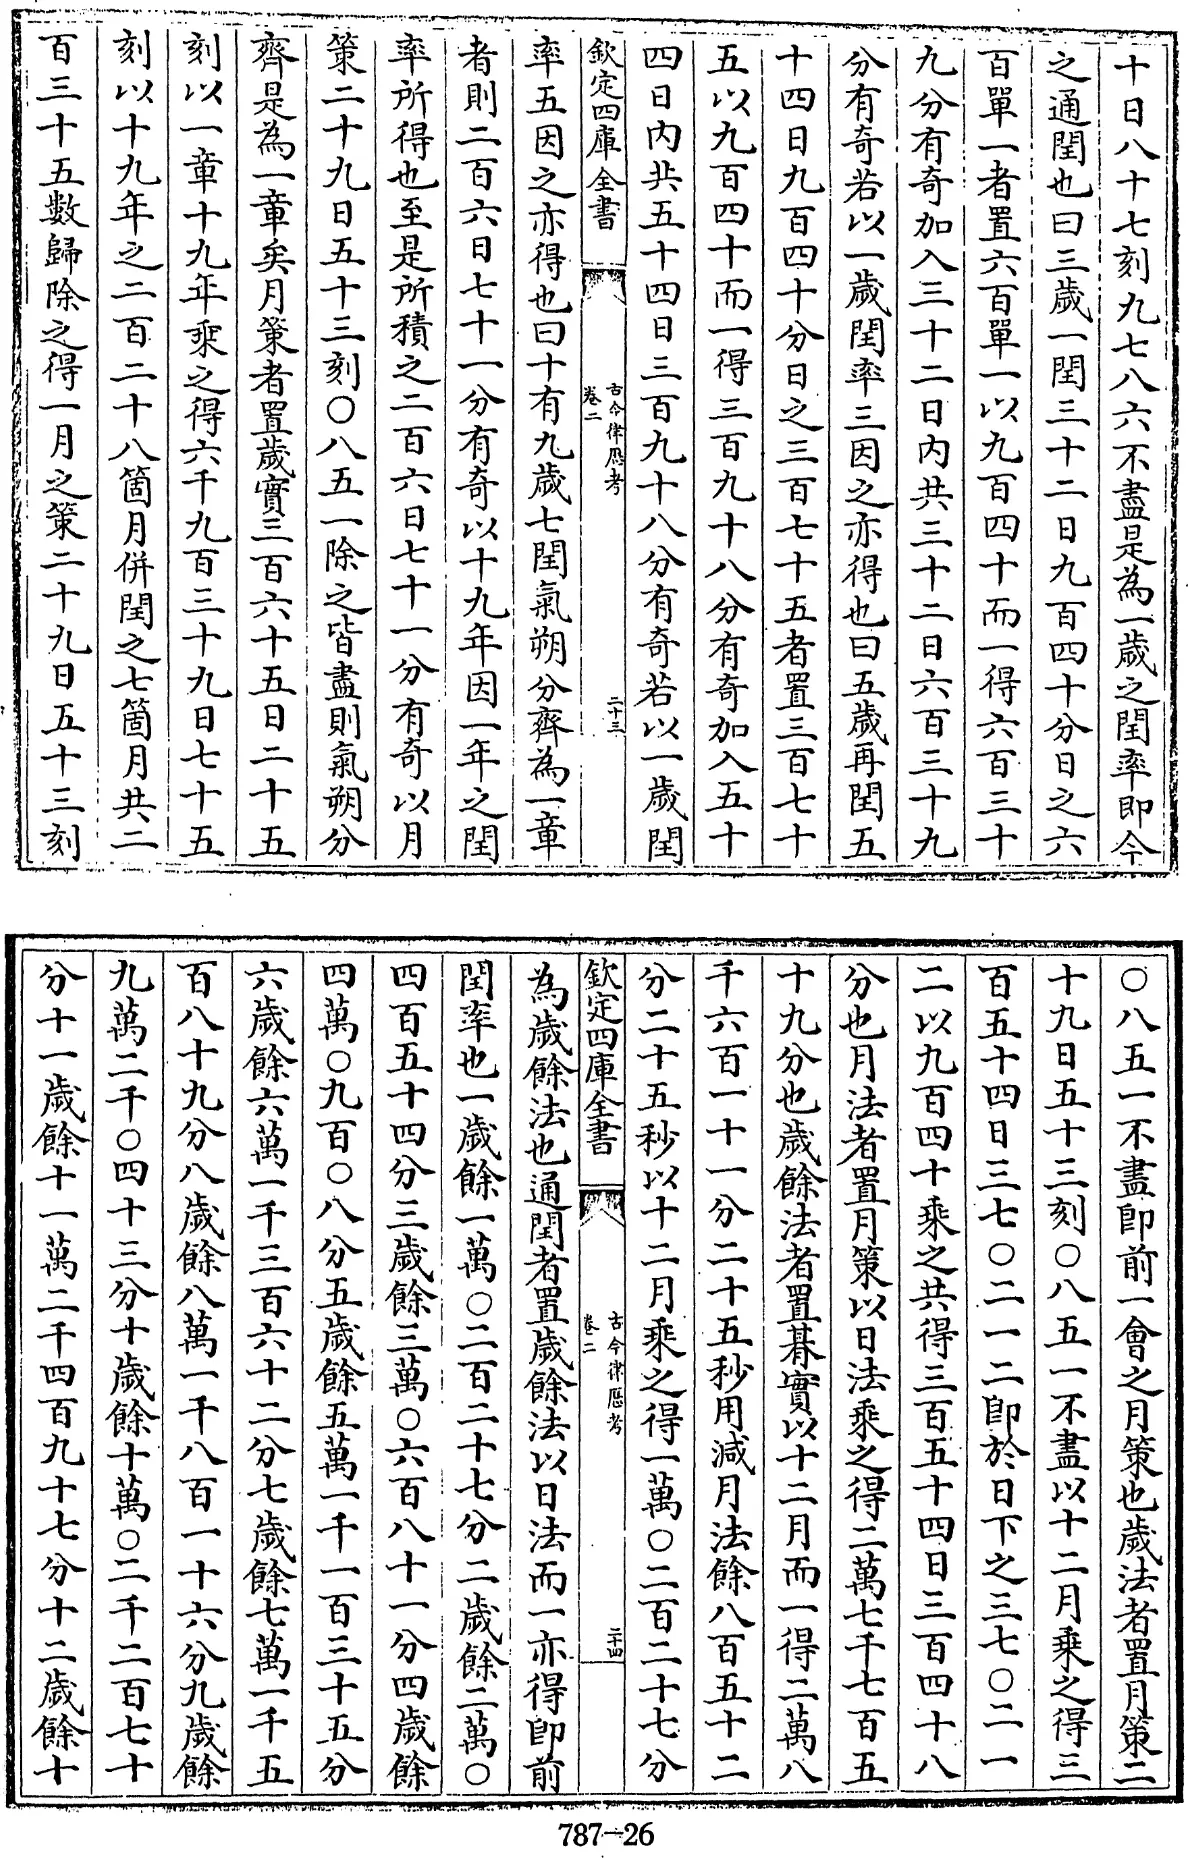 十日八十七刻九七八六不盡是為一歲之閏率即今
之通閏也曰三歲一閏三十二日九百四十分日之六
百單一者置六百單一以九百四十而一得六百三十
九分有奇加入三十二日內共三十二日六百三十九
分有奇若以一歲閏率三因之亦得也曰五歲再閏五
十四日九百四十分日之三百七十五者置三百七十
五以九百四十而一得三百九十八分有奇加入五十
四日內共五十四日三百九十八分有奇若以一歲閏
欽定四庫全書
古今律厯考
卷二
二十三
率五因之亦得也曰十有九歲七閏氣朔分齊為一章
者則二百六日七十一分有奇以十九年因一年之閏
率所得也至是所積之二百六日七十一分有奇以月
策二十九日五十三刻〇八五一除之皆盡則氣朔分
齊是為一章矣月策者置歲實三百六十五日二十五
刻以一章十九年乘之得六千九百三十九日七十五
刻以十九年之二百二十八箇月併閏之七箇月共二
百三十五數歸除之得一月之策二十九日五十三刻
〇八五一不盡卽前一會之月策也歲法者置月策二
十九日五十三刻〇八五一不盡以十二月乘之得三
百五十四日三七〇二一二卽於日下之三七〇二一
二以九百四十乘之共得三百五十四日三百四十八
分也月法者置月策以日法乘之得二萬七千七百五
十九分也歲餘法者置朞實以十二月而一得二萬八
千六百一十一分二十五秒用減月法餘八百五十二
分二十五秒以十二月乘之得一萬〇二百二十七分
欽定四庫全書
古今律厯考
卷二
二十四
為歲餘法也通閏者置歲餘法以日法而一亦得卽前
閏率也一歲餘一萬〇二百二十七分二歲餘二萬〇
四百五十四分三歲餘三萬〇六百八十一分四歲餘
四萬〇九百〇八分五歲餘五萬一千一百三十五分
六歲餘六萬一千三百六十二分七歲餘七萬一千五
百八十九分八歲餘八萬一千八百一十六分九歲餘
九萬二千〇四十三分十歲餘十萬〇二千二百七十
分十一歲餘十一萬二千四百九十七分十二歲餘十
787-26